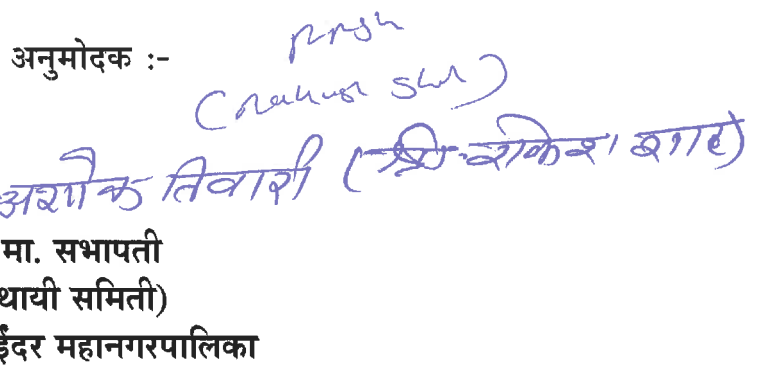 अनुमोदक :-
(Rakesh Shah)
अशोक तिवारी (श्री राकेश शाह)
मा. सभापती
थायी समिती)
ईंदर महानगरपालिका